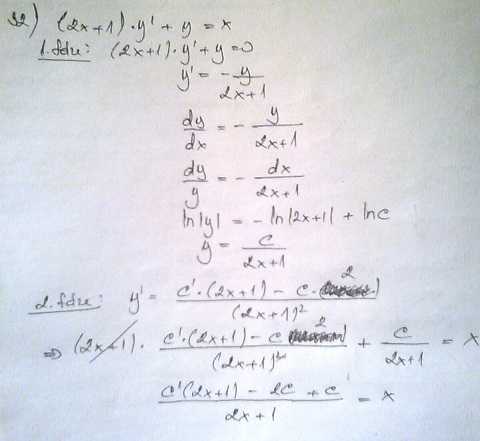 32) (2x+1)·y' + y = x
1. fáze: (2x+1)·y' + y = 0
y' = - y/(2x+1)
dy/dx = - y/(2x+1)
dy/y = - dx/(2x+1)
ln|y| = - ln|2x+1| + lnc
y = c/(2x+1)
2. fáze: y' = (c'·(2x+1) - c·2)/(2x+1)²
⇒ (2x+1)· (c'·(2x+1) - c 2)/(2x+1)² + c/(2x+1) = x
(c'(2x+1) - 2c + c)/(2x+1) = x